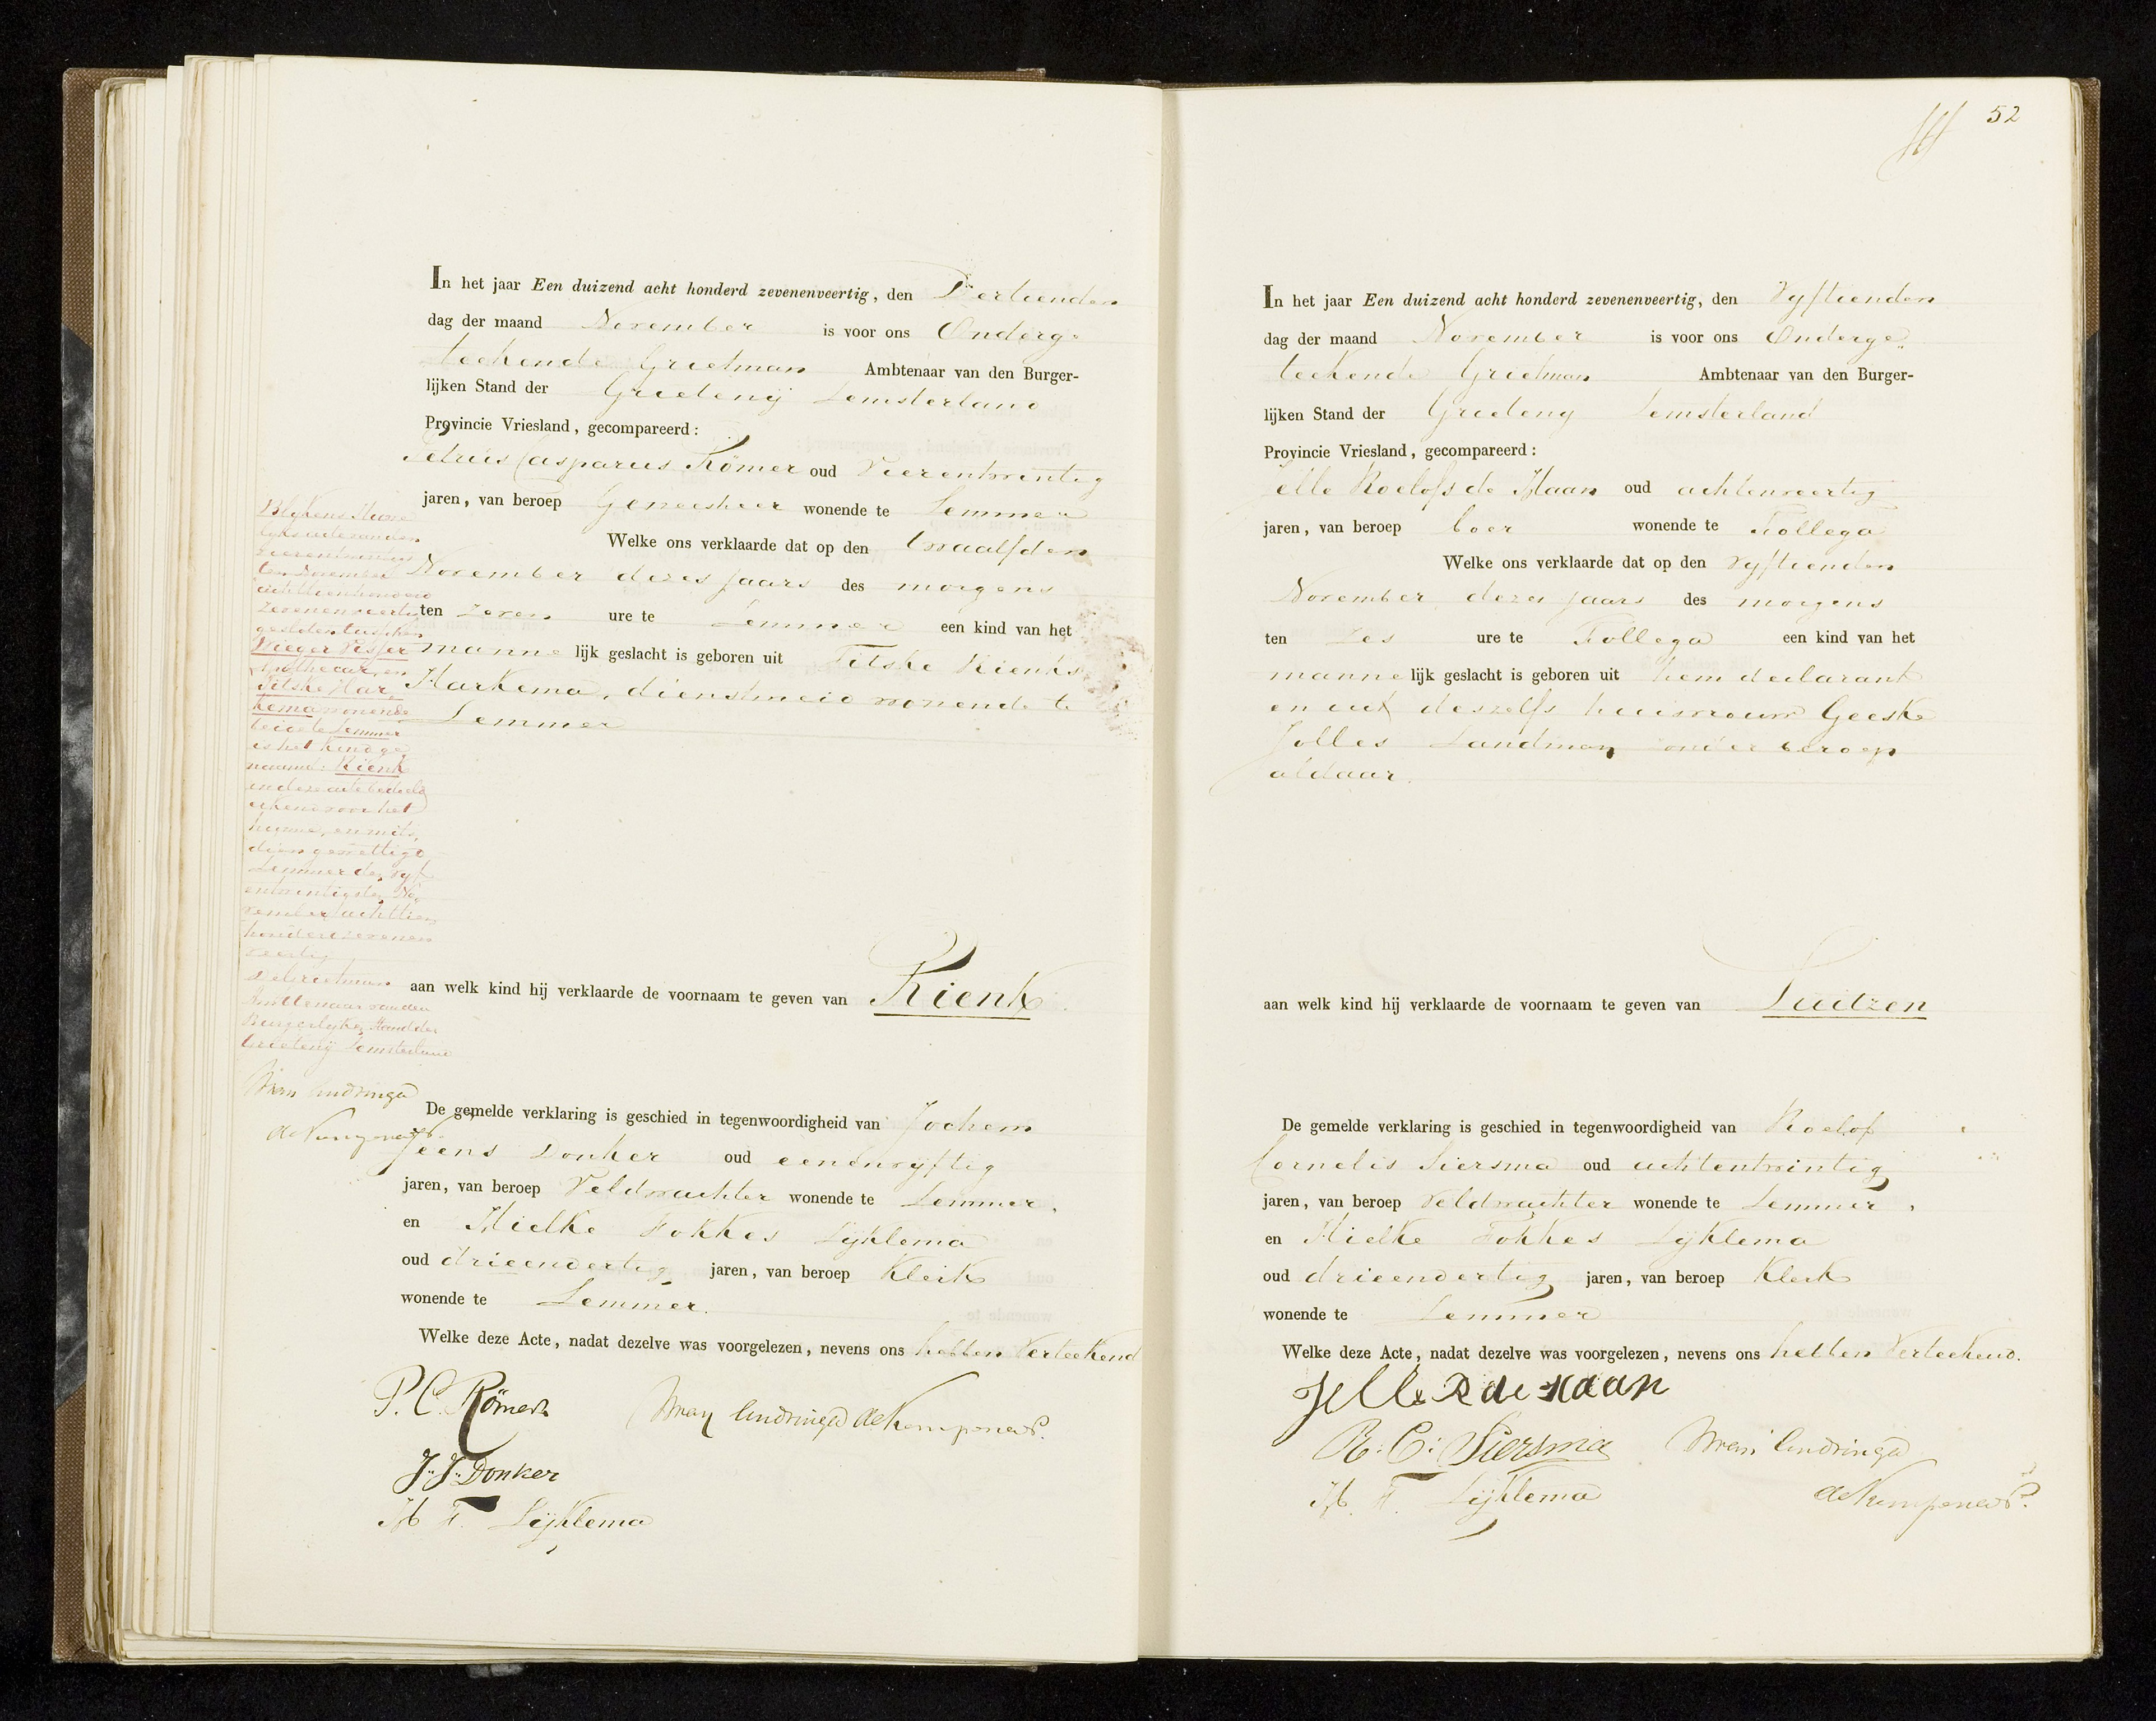 In het jaar Een duizend acht honderd zevenenveertig, den Dertienden
dag der maand November is voor ons Onderge-
teekende Grietman Ambtenaar van den Burger-
lijken Stand der Grietenij Lemsterland
Provincie Vriesland, gecompareerd:
Petrus Casparus Römer oud Vierentwintig
jaren, van beroep Geneesheer wonende te Lemmer
Welke ons verklaarde dat op den twaalfden
November dezes jaars des morgens
ten zeven ure te Lemmer een kind van het
mannelijk geslacht is geboren uit Titske Rienks
Harkema, dienstmeid wonende te
Lemmer
aan welk kind hij verklaarde de voornaam te geven van Rienk.
De gemelde verklaring is geschied in tegenwoordigheid van Jochem
Jeens Donker oud eenenvyftig
jaren, van beroep Veldwachter wonende te Lemmer.
en Hielke Fokkes Lijklema
oud drieendertig jaren, van beroep Klerk
wonende te Lemmer.
Welke deze Acte, nadat dezelve was voorgelezen, nevens ons hebben Verteekend
P. C. Römer
J. J. Donker
H. F. Lijklema
Blykens Huwe
lyksacte van den
vierentwintigs
ten November
achttienhonderd
zevenenveertig
gesloten tusschen
Wieger Visser
Apothecar, en
Titske Har
kema wonende
beide te Lemmer
is het kind ge
naamd: Rienk
in deze acte bedoeld
erkend voor het
hunne, en mits
dien gewettigd
Lemmer den Vyf
entwintigsten No
vember achttien
honderd zevenen
veertig
De Grietman
Ambtenaar van den
Burgerlyken Stand der
Grietenij Lemsterland
52
In het jaar Een duizend acht honderd zevenenveertig, den Vyftienden
dag der maand November is voor ons Onderge„
teekende Grietman Ambtenaar van den Burger-
lijken Stand der Grieteny Lemsterland
Provincie Vriesland, gecompareerd:
Jelle Roelofs de Haan oud achtenveertig
jaren, van beroep boer wonende te Follega
Welke ons verklaarde dat op den Vyftienden
November dezes jaars des morgens
ten Zes ure te Follega een kind van het
mannelijk geslacht is geboren uit hem declarant
en uit deszelfs huisvrouw Geeske
Jolles Landman zonder beroep
aldaar.
aan welk kind hij verklaarde de voornaam te geven van Luitzen
De gemelde verklaring is geschied in tegenwoordigheid van Roelof
Cornelis Siersma oud achtentwintig
jaren, van beroep Veldwachter wonende te Lemmer,
en Hielke Fokkes Lijklema
oud drieendertig jaren, van beroep Klerk
wonende te Lemmer
Welke deze Acte, nadat dezelve was voorgelezen, nevens ons hebben Verteekend.
Jelle R de Haan
R: C: Siersma
H. F. Lijklema